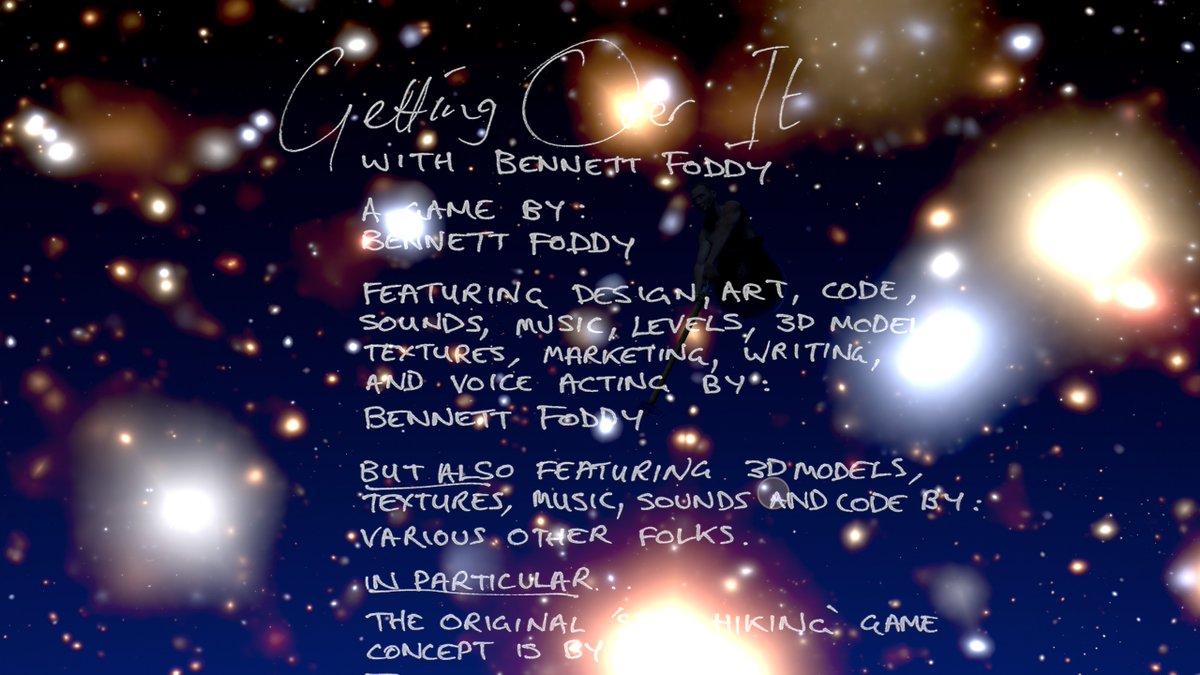 Getting Over It
WITH BENNETT FODDY
A GAME BY:
BENNETT FODDY
FEATURING DESIGN, ART, CODE,
SOUNDS, MUSIC, LEVELS, 3D MODEL
TEXTURES, MARKETING, WRITING,
AND VOICE ACTING BY:
BENNETT FODDY
BUT ALSO FEATURING 3D MODELS,
TEXTURES, MUSIC, SOUNDS AND CODE BY:
VARIOUS OTHER FOLKS.
IN PARTICULAR..
THE ORIGINAL HIKING' GAME
CONCEPT IS BY